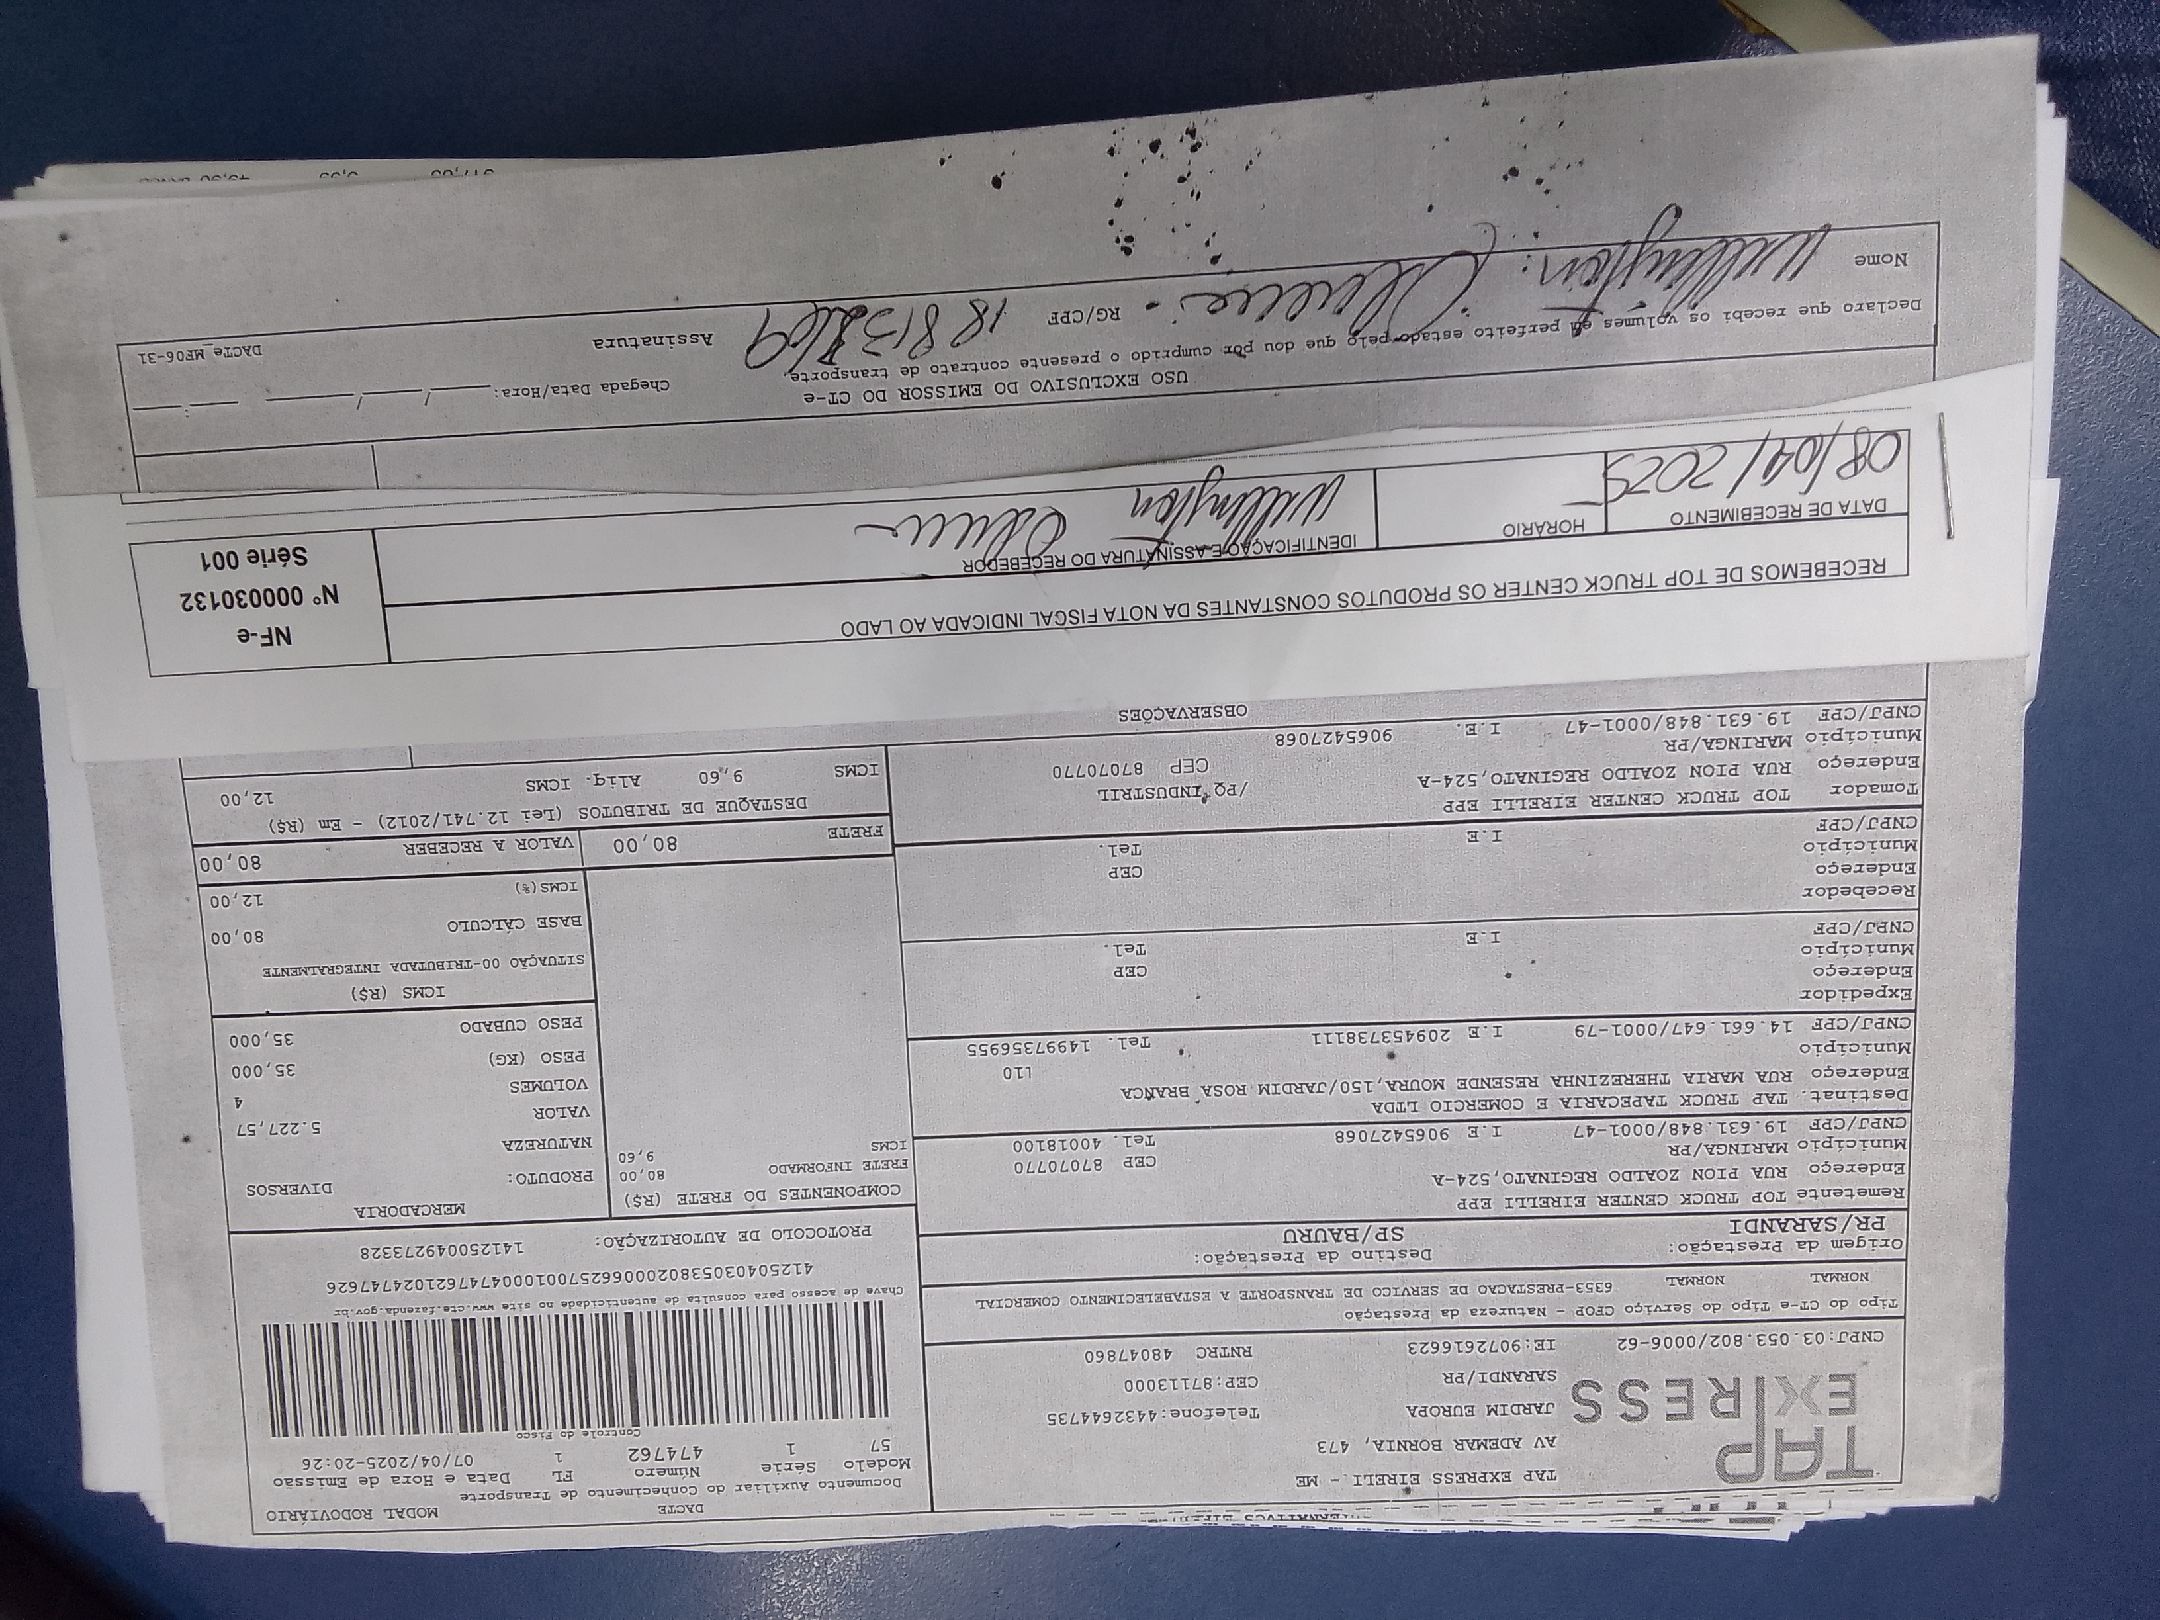 TAP
EXPRESS
TAP EXPRESS EIRELI - ME
AV ADEMAR BORNIA, 473
JARDIM EUROPA Telefone:4432644735
SARANDI/PR CEP:87113000
CNPJ:03.053.802/0006-62 IE:9072616623 RNTRC 48047860
DACTE MODAL RODOVIÁRIO
Documento Auxiliar do Conhecimento de Transporte
Modelo Série Número FL Data e Hora de Emissao
57 1 474762 1 07/04/2025-20:26
Controle do Fisco
Chave de acesso para consulta de autenticidade no site www.cte.fazenda.gov.br
41250403053802000662570010004747621024747626
PROTOCOLO DE AUTORIZAÇÃO: 141250049273328
Tipo do CT-e Tipo do Serviço CFOP - Natureza da Prestação
NORMAL NORMAL 6353-PRESTACAO DE SERVICO DE TRANSPORTE A ESTABELECIMENTO COMERCIAL
Origem da Prestação: Destino da Prestação:
PR/SARANDI SP/BAURU
Remetente TOP TRUCK CENTER EIRELLI EPP
Endereço RUA PION ZOALDO REGINATO,524-A
Município MARINGA/PR CEP 87070770
CNPJ/CPF 19.631.848/0001-47 I.E 9065427068 Tel. 40018100
Destinat. TAP TRUCK TAPECARIA E COMERCIO LTDA
Endereço RUA MARIA THEREZINHA RESENDE MOURA,150/JARDIM ROSA BRANCA
Município L10
CNPJ/CPF 14.661.647/0001-79 I.E 209453738111 Tel. 14997356955
Expedidor
Endereço
Município CEP
CNPJ/CPF I.E Tel.
Recebedor
Endereço
Município CEP
CNPJ/CPF I.E Tel.
Tomador TOP TRUCK CENTER EIRELLI EPP
Endereço RUA PION ZOALDO REGINATO,524-A /PQ INDUSTRIL
Município MARINGA/PR CEP 87070770
CNPJ/CPF 19.631.848/0001-47 I.E. 9065427068
OBSERVAÇÕES
COMPONENTES DO FRETE (R$)
FRETE INFORMADO 80,00
ICMS 9,60
MERCADORIA
PRODUTO: DIVERSOS
NATUREZA
VALOR 5.227,57
VOLUMES 4
PESO (KG) 35,000
PESO CUBADO 35,000
ICMS (R$)
SITUAÇÃO 00-TRIBUTADA INTEGRALMENTE
BASE CÁLCULO 80,00
ICMS(%) 12,00
FRETE 80,00 VALOR A RECEBER 80,00
DESTAQUE DE TRIBUTOS (Lei 12.741/2012) - Em (R$)
ICMS 9,60 Aliq. ICMS 12,00
RECEBEMOS DE TOP TRUCK CENTER OS PRODUTOS CONSTANTES DA NOTA FISCAL INDICADA AO LADO
NF-e
Nº 000030132
Série 001
DATA DE RECEBIMENTO HORÁRIO IDENTIFICAÇÃO E ASSINATURA DO RECEBEDOR
08/04/2025 Wellington
USO EXCLUSIVO DO EMISSOR DO CT-e
Declaro que recebi os volumes em perfeito estado pelo que dou por cumprido o presente contrato de transporte.
Chegada Data/Hora: ____/____/____ ___:___
Nome Wellington RG/CPF Assinatura
DACTe_MF06-31